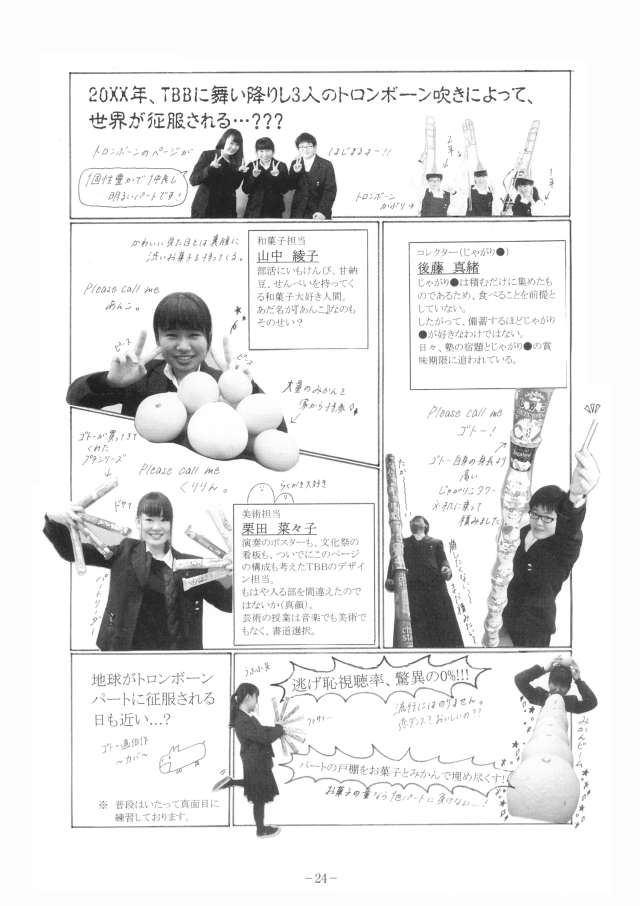 20XX年、TBBに舞い降りし3人のトロンボーン吹きによって、
世界が征服される…???
トロンボーンのページが
はじまるよー!!
1個性豊かで仲良し
明るいパートです!
2年
1年
トロンボーン
かぶり→
かわいい見た目とは裏腹に
渋いお菓子を持ってくる。
Please call me
あんこ。
ピース
ピース
和菓子担当
山中 綾子
部活にいもけんぴ、甘納
豆、せんべいを持ってく
る和菓子大好き人間。
あだ名が『あんこ』なのも
そのせい?
大量のみかんを
家から持参
コレクター(じゃがり●)
後藤 真緒
じゃがり●は積むだけに集めたも
のであるため、食べることを前提と
していない。
したがって、備蓄するほどじゃがり
●が好きなわけではない。
日々、塾の宿題とじゃがり●の賞
味期限に追われている。
Please call me
ゴトー!
ゴトー自身の身長より
高い
じゃがりこタワー
※机に乗って
積みました
ゴトーが買ってきて
くれた
プチシリーズ
Please call me
くりりん。
らくがき大好き
ドヤッ
パートリーダー
美術担当
栗田 菜々子
演奏のポスターも、文化祭の
看板も、ついでにこのページ
の構成も考えたTBBのデザイ
ン担当。
もはや入る部を間違えたので
はないか(真顔)。
芸術の授業は音楽でも美術で
もなく、書道選択。
地球がトロンボーン
パートに征服される
日も近い…?
ゴトー画伯作
~カバ~
※ 普段はいたって真面目に
練習しております。
うふふ
逃げ恥視聴率、驚異の0%!!!
流行にはのりません。
恋ダンス?おいしいの??
パートの戸棚をお菓子とみかんで埋め尽くす!
お菓子の量なら他パートに負けない…!
みかんビーム
-24-